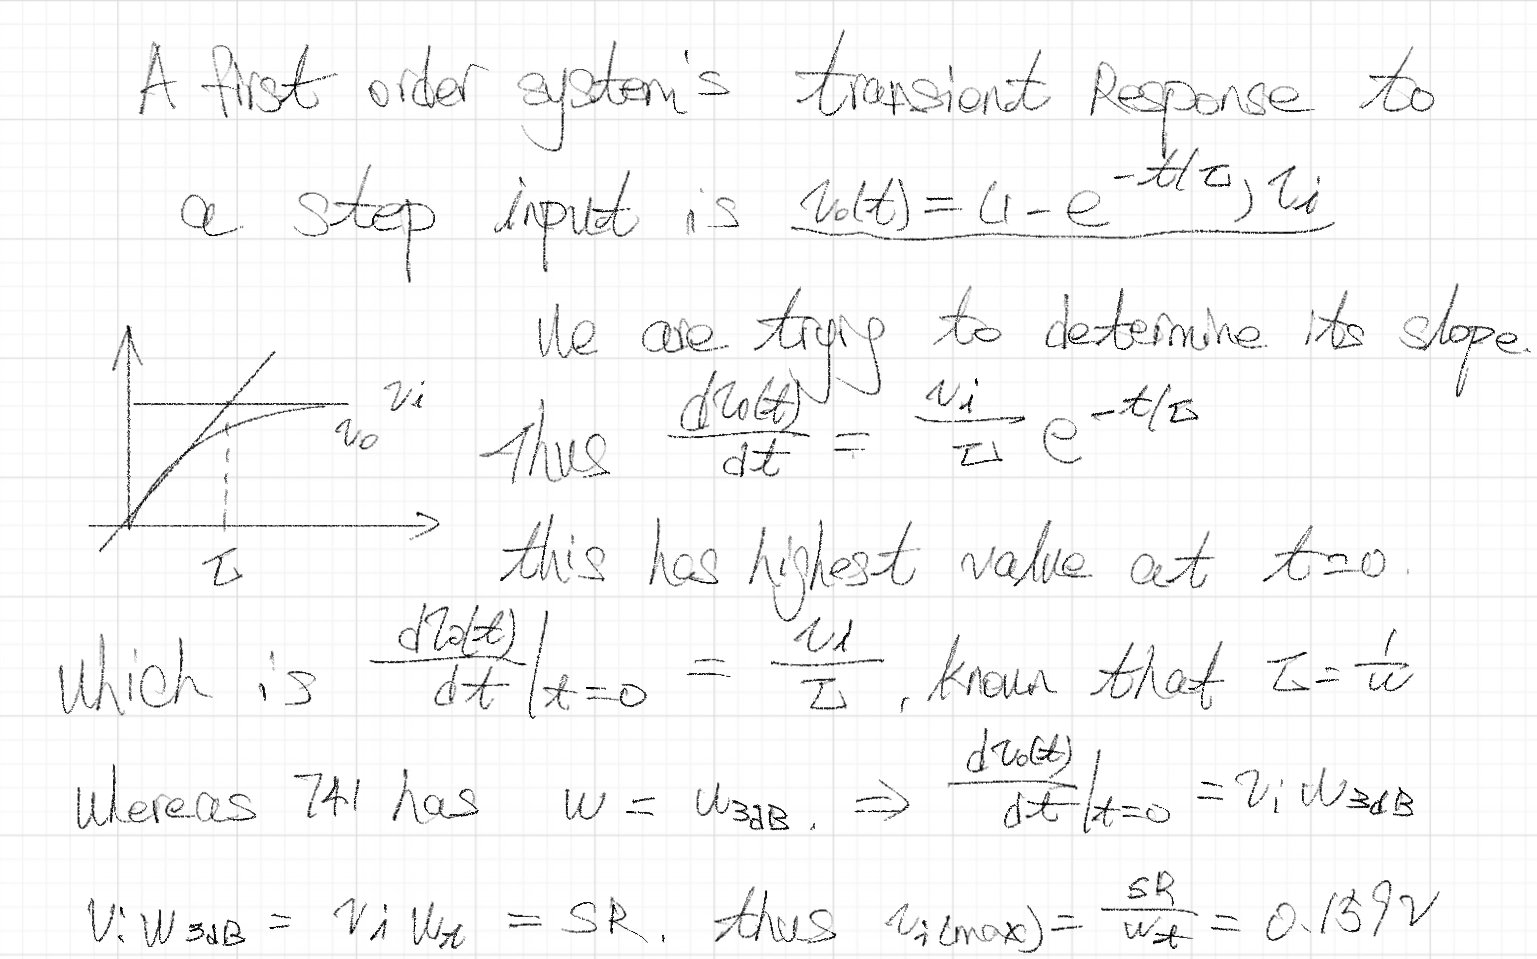 A first order system's transient Response to
a step input is v₀(t) = (1 - e^{-t/τ}) vᵢ
We are trying to determine its slope.
vᵢ
v₀
τ
thus dv₀(t)/dt = vᵢ/τ e^{-t/τ}
this has highest value at t=0.
which is dv₀(t)/dt |t=0 = vᵢ/τ , known that τ = 1/w
whereas 741 has w = w3dB. ⇒ dv₀(t)/dt |t=0 = vᵢ w3dB
vᵢ w3dB = vᵢ wt = SR. thus vᵢ(max) = SR/wt = 0.159V